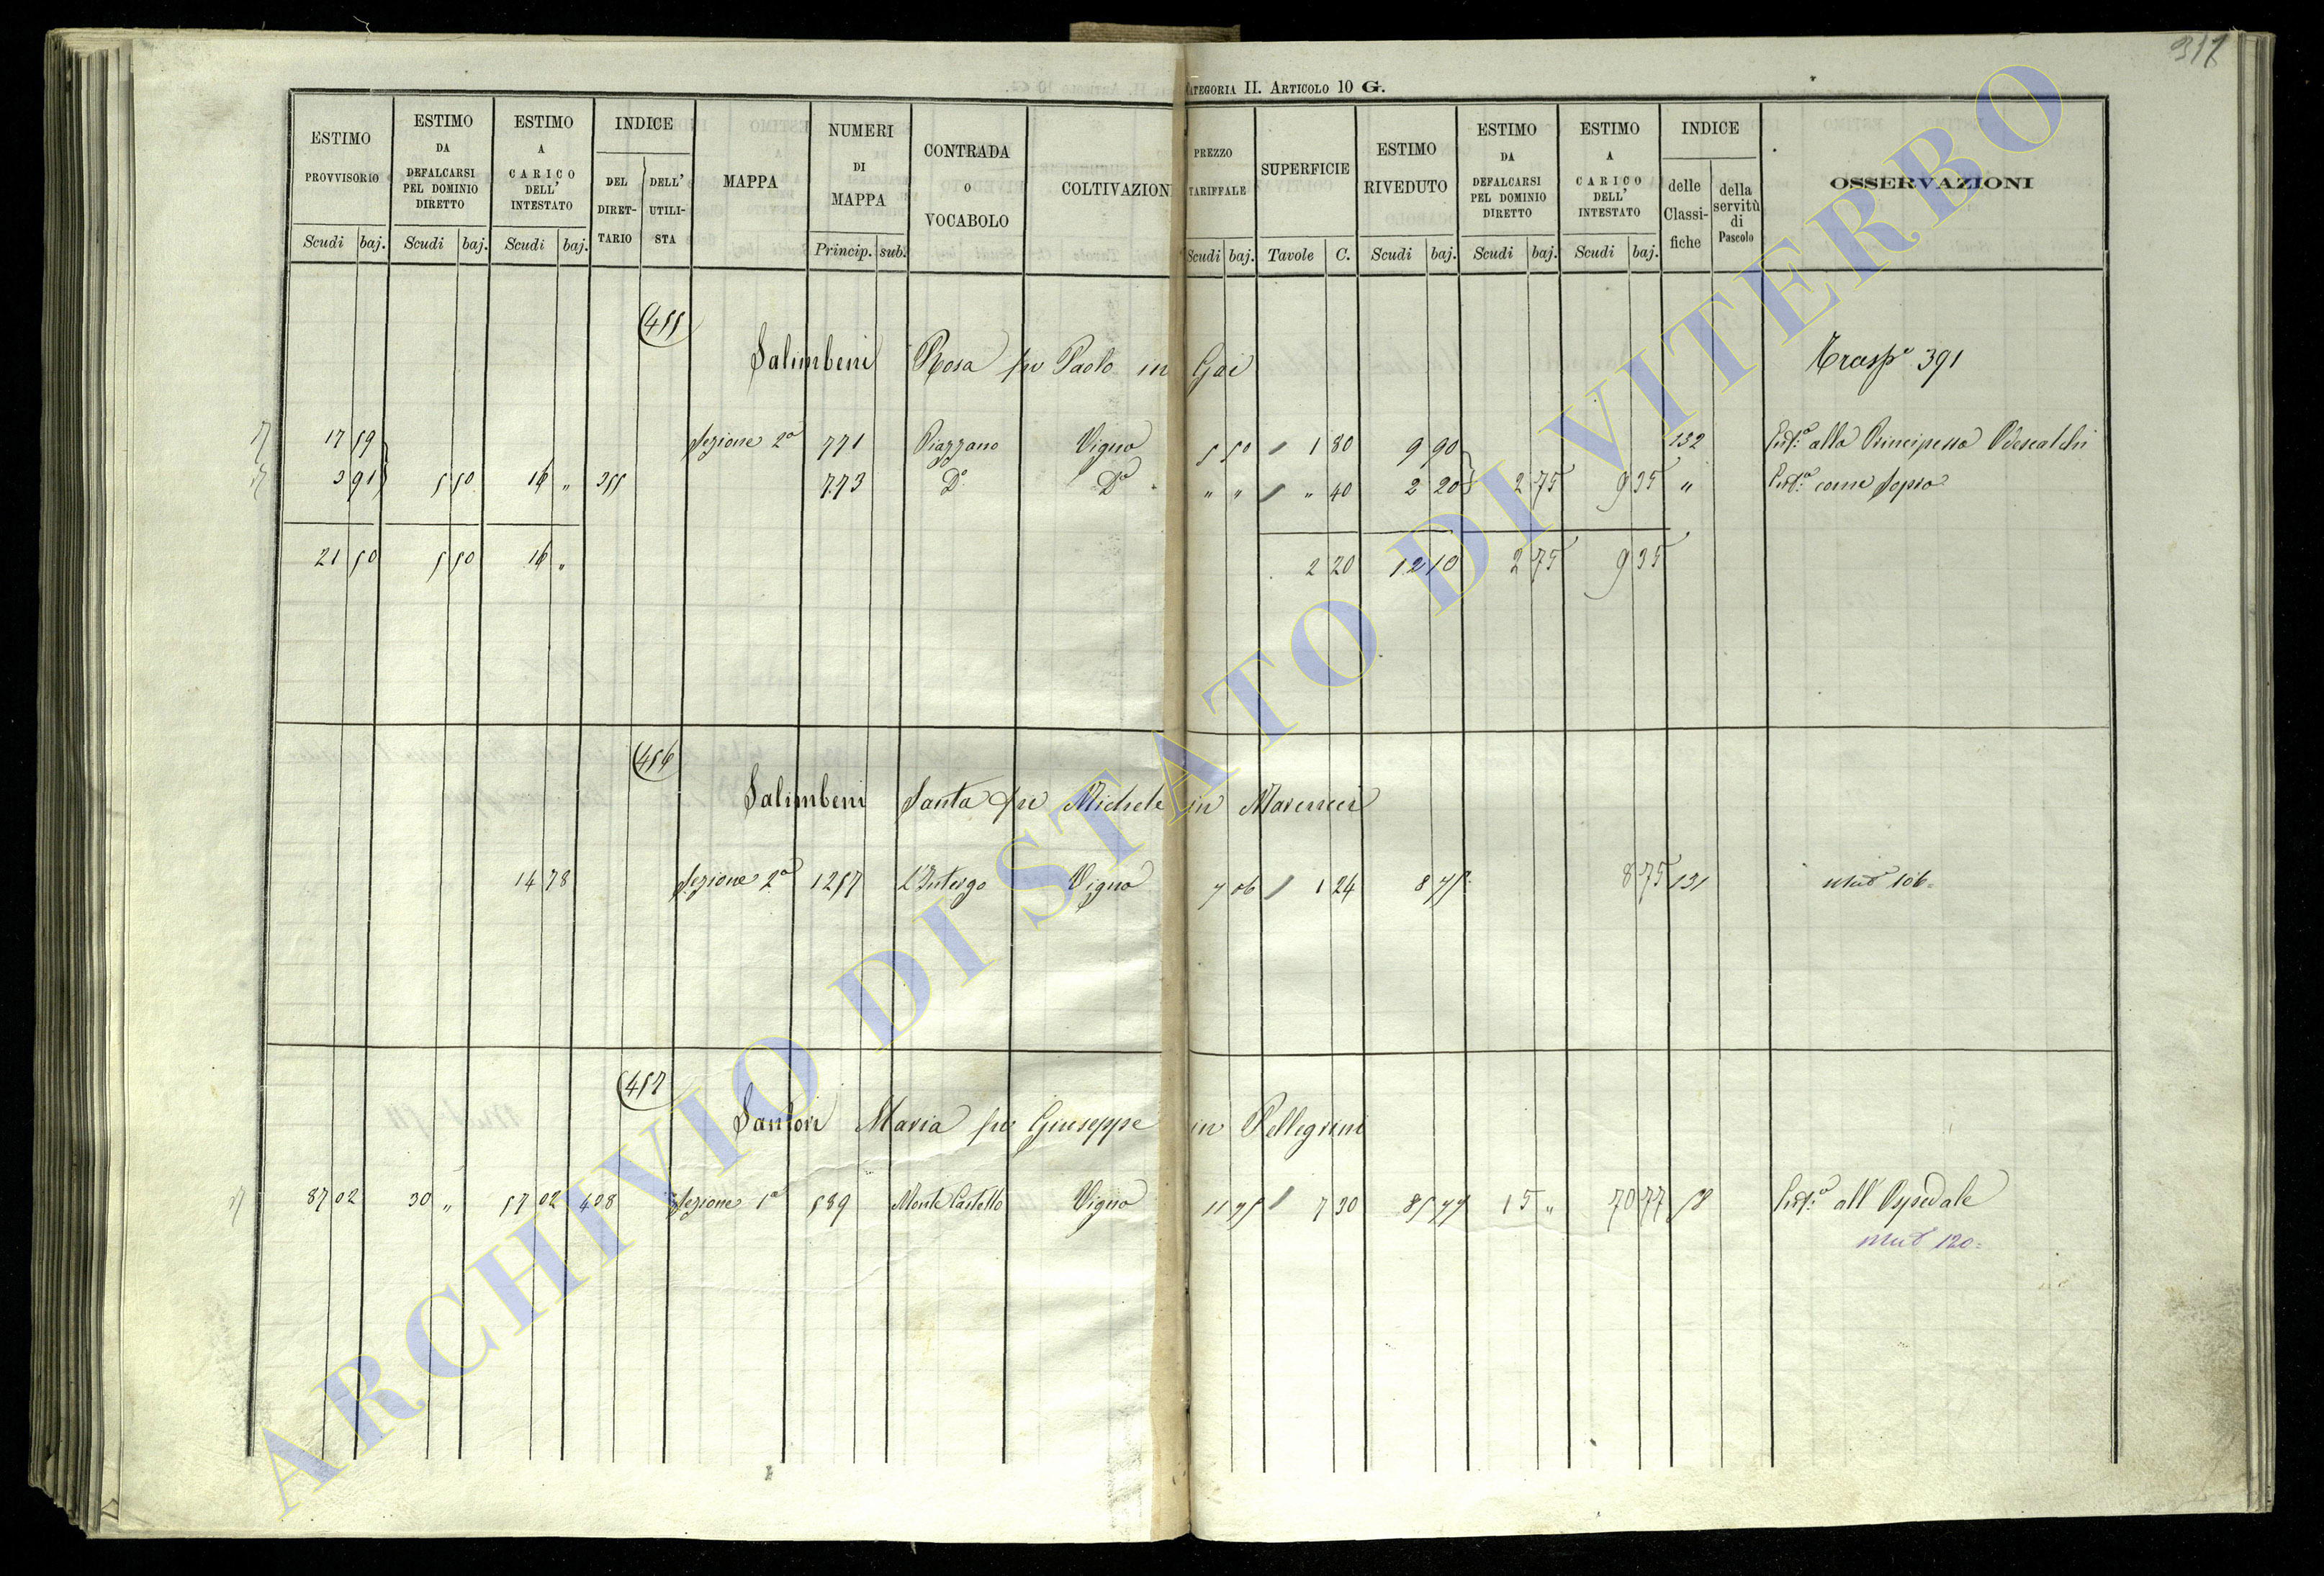 317
CATEGORIA II. ARTICOLO 10 G.
ESTIMO PROVVISORIO
ESTIMO DA DEFALCARSI PEL DOMINIO DIRETTO
ESTIMO A CARICO DELL' INTESTATO
INDICE
DEL DIRETTARIO
DELL' UTILISTA
MAPPA
NUMERI DI MAPPA
CONTRADA O VOCABOLO
COLTIVAZION
PREZZO TARIFFALE
SUPERFICIE
ESTIMO RIVEDUTO
ESTIMO DA DEFALCARSI PEL DOMINIO DIRETTO
ESTIMO A CARICO DELL' INTESTATO
INDICE
delle Classifiche
della servitù di Pascolo
OSSERVAZIONI
Scudi baj. Scudi baj. Scudi baj. Princip. sub. Scudi baj. Tavole C. Scudi baj. Scudi baj. Scudi baj.
455
Salimbeni Rosa fu Paolo in Gai
Trasp.e 391
17 59 Sezione 2a 771 Piazzano Vigna 5 50 1 80 9 90 132 Enf.a alla Principessa Odescalchi
3 91 5 50 16 " 355 773 Do Da " " " 40 2 20 2 75 9 35 " Enf.a come sopra
21 50 5 50 16 " 2 20 12 10 2 75 9 35
456
Salimbeni Santa fu Michele in Marenucci
14 78 Sezione 2a 1257 L'Intergo Vigna 7 06 1 24 8 75 8 75 131 Mut 106=
457
Santori Maria fu Giuseppe in Pellegrini
87 02 30 " 57 02 428 Sezione 1a 589 Monte Castello Vigna 11 75 7 30 85 77 15 " 70 77 58 Enf.a all' Ospedale
Mut 120=
ARCHIVIO DI STATO DI VITERBO